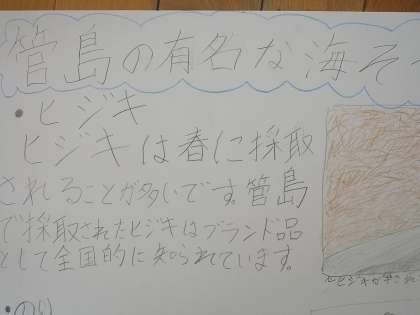 管島の有名な海そう
・ヒジキ
ヒジキは春に採取
されることが多いです。管島
で採取されたヒジキはブランド品
として全国的に知られています。
・のり